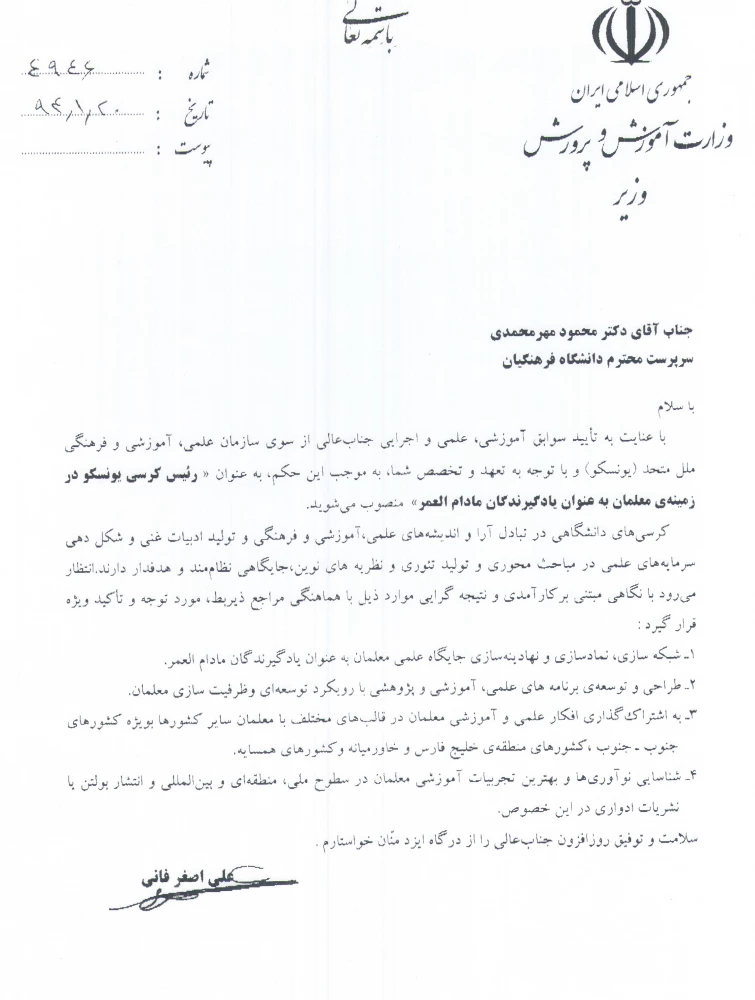 باسمه تعالی
جمهوری اسلامی ایران
وزارت آموزش و پرورش
وزیر
شماره : ٤٩٤٦
تاریخ : ٩٤,١,٢٠
پیوست :
جناب آقای دکتر محمود مهرمحمدی
سرپرست محترم دانشگاه فرهنگیان
با سلام
با عنایت به تأیید سوابق آموزشی، علمی و اجرایی جناب‌عالی از سوی سازمان علمی، آموزشی و فرهنگی
ملل متحد (یونسکو) و با توجه به تعهد و تخصص شما، به موجب این حکم، به عنوان « رئیس کرسی یونسکو در
زمینه‌ی معلمان به عنوان یادگیرندگان مادام العمر» منصوب می‌شوید.
کرسی‌های دانشگاهی در تبادل آرا و اندیشه‌های علمی،آموزشی و فرهنگی و تولید ادبیات غنی و شکل دهی
سرمایه‌های علمی در مباحث محوری و تولید تئوری و نظریه های نوین،جایگاهی نظام‌مند و هدفدار دارند.انتظار
می‌رود با نگاهی مبتنی بر کارآمدی و نتیجه گرایی موارد ذیل با هماهنگی مراجع ذیربط، مورد توجه و تأکید ویژه
قرار گیرد :
۱ـ شبکه سازی، نمادسازی و نهادینه‌سازی جایگاه علمی معلمان به عنوان یادگیرندگان مادام العمر.
۲ـ طراحی و توسعه‌ی برنامه های علمی، آموزشی و پژوهشی با رویکرد توسعه‌ای وظرفیت سازی معلمان.
۳ـ به اشتراک‌گذاری افکار علمی و آموزشی معلمان در قالب‌های مختلف با معلمان سایر کشورها بویژه کشورهای
جنوب ـ جنوب ،کشورهای منطقه‌ی خلیج فارس و خاورمیانه وکشورهای همسایه.
۴ـ شناسایی نوآوری‌ها و بهترین تجربیات آموزشی معلمان در سطوح ملی، منطقه‌ای و بین‌المللی و انتشار بولتن یا
نشریات ادواری در این خصوص.
سلامت و توفیق روزافزون جناب‌عالی را از درگاه ایزد منّان خواستارم .
علی اصغر فانی